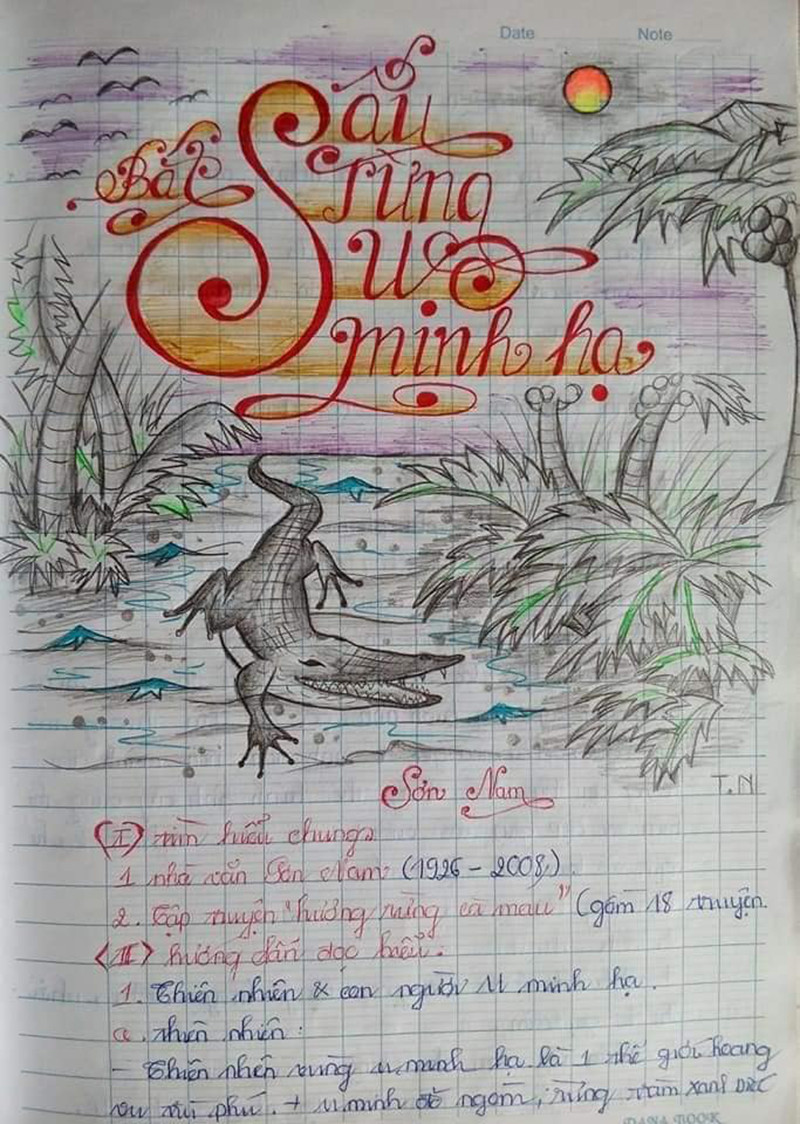 Date Note
Bắt Sấu
rừng
U
minh hạ
Sơn Nam
T.N
(I) tìm hiểu chung
1 nhà văn Sơn Nam (1926 - 2008)
2. Tập truyện "hương rừng cà mau" (gồm 18 truyện.
(II) hướng dẫn đọc hiểu.
1. Thiên nhiên & con người U minh hạ.
a. thiên nhiên:
- Thiên nhiên vùng u minh hạ là 1 thế giới hoang
u minh đỏ ngòm, rừng tràm xanh